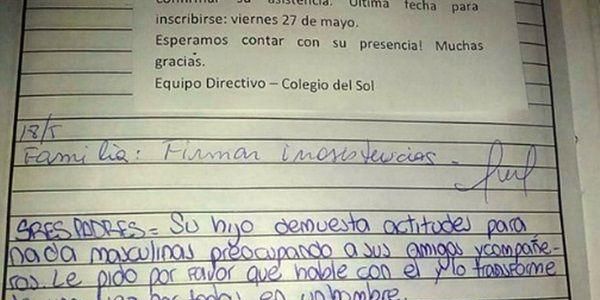 confirmar su asistencia. Última fecha para
inscribirse: viernes 27 de mayo.
Esperamos contar con su presencia! Muchas
gracias.
Equipo Directivo – Colegio del Sol
18/5
Familia: Firmar inasistencias -
SRES PADRES = Su hijo demuesta actitudes para
nada masculinas preocupando a sus amigos y compañe-
ros. Le pido por favor que hable con el y lo transforme
de una vez por todas en un hombre.